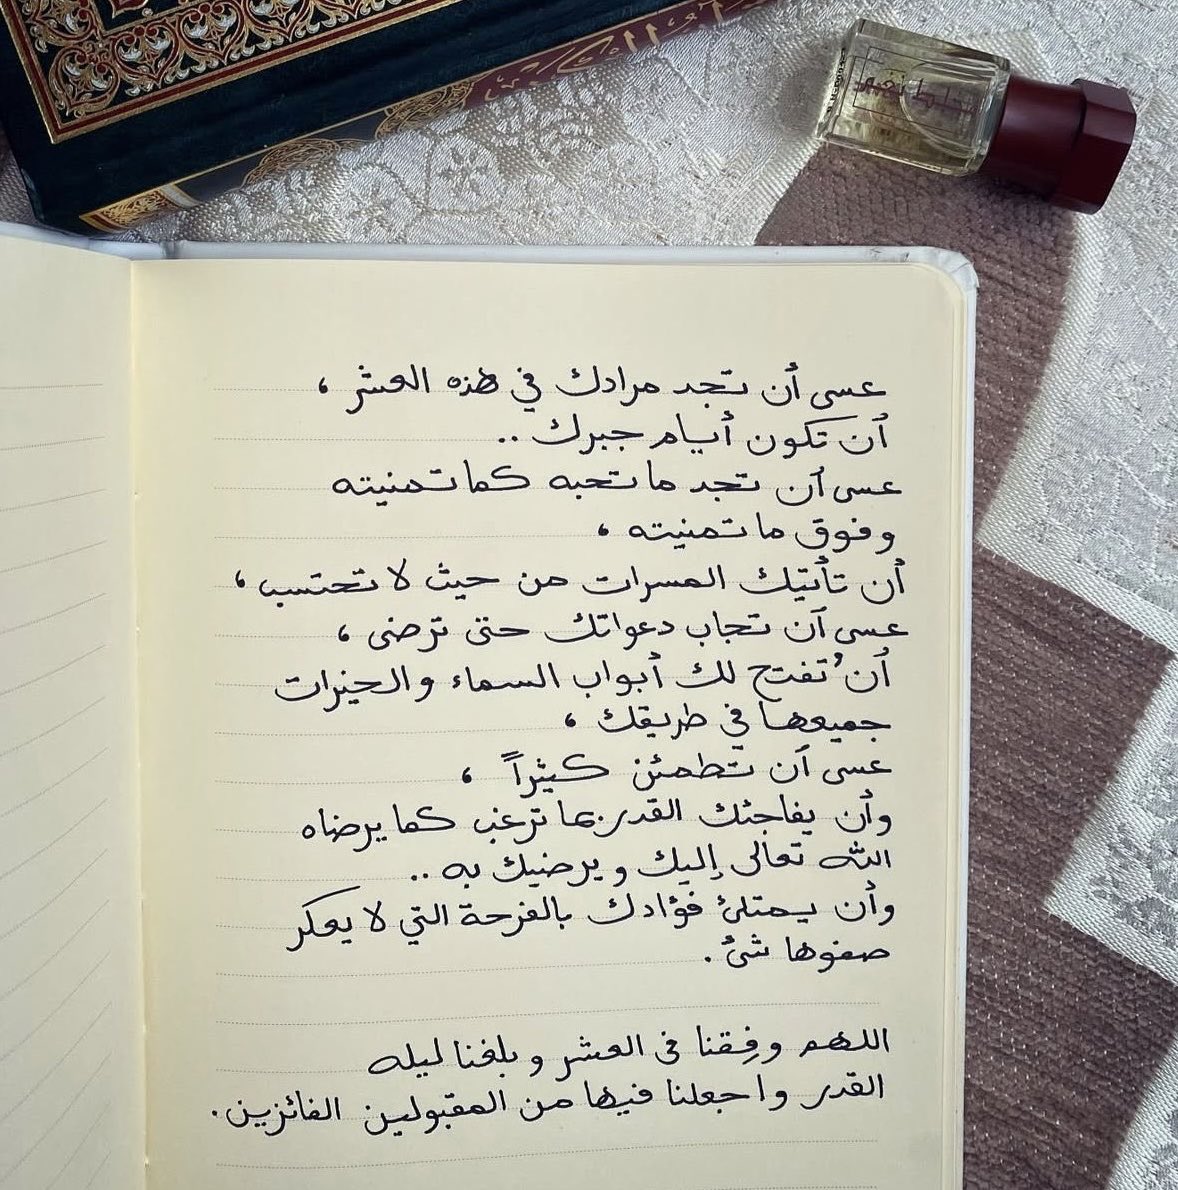 عسى أن تجد مرادك في هذه العشر ،
أن تكون أيام جبرك ..
عسى أن تجد ما تحبه كما تمنيته
وفوق ما تمنيته ،
أن تأتيك المسرات من حيث لا تحتسب ،
عسى أن تجاب دعواتك حتى ترضى ،
أن تُفتح لك أبواب السماء والخيرات
جميعها في طريقك ،
عسى أن تطمئن كثيراً ،
وأن يفاجئك القدر بما ترغب كما يرضاه
الله تعالى إليك ويرضيك به ..
وأن يمتلئ فؤادك بالفرحة التي لا يعكر
صفوها شئ .
اللهم وفِقنا في العشر وبلغنا ليله
القدر واجعلنا فيها من المقبولين الفائزين .